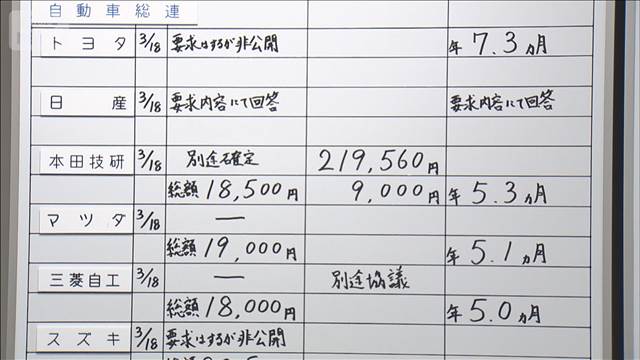 自動車総連
トヨタ 3/18 要求はするが非公開 年 7.3ヵ月
日産 3/18 要求内容にて回答 要求内容にて回答
本田技研 3/18 別途確定 219,560円
総額 18,500円 9,000円 年 5.3ヵ月
マツダ 3/18 ー
総額 19,000円 年 5.1ヵ月
三菱自工 3/18 ー 別途協議
総額 18,000円 年 5.0ヵ月
スズキ 3/18 要求はするが非公開